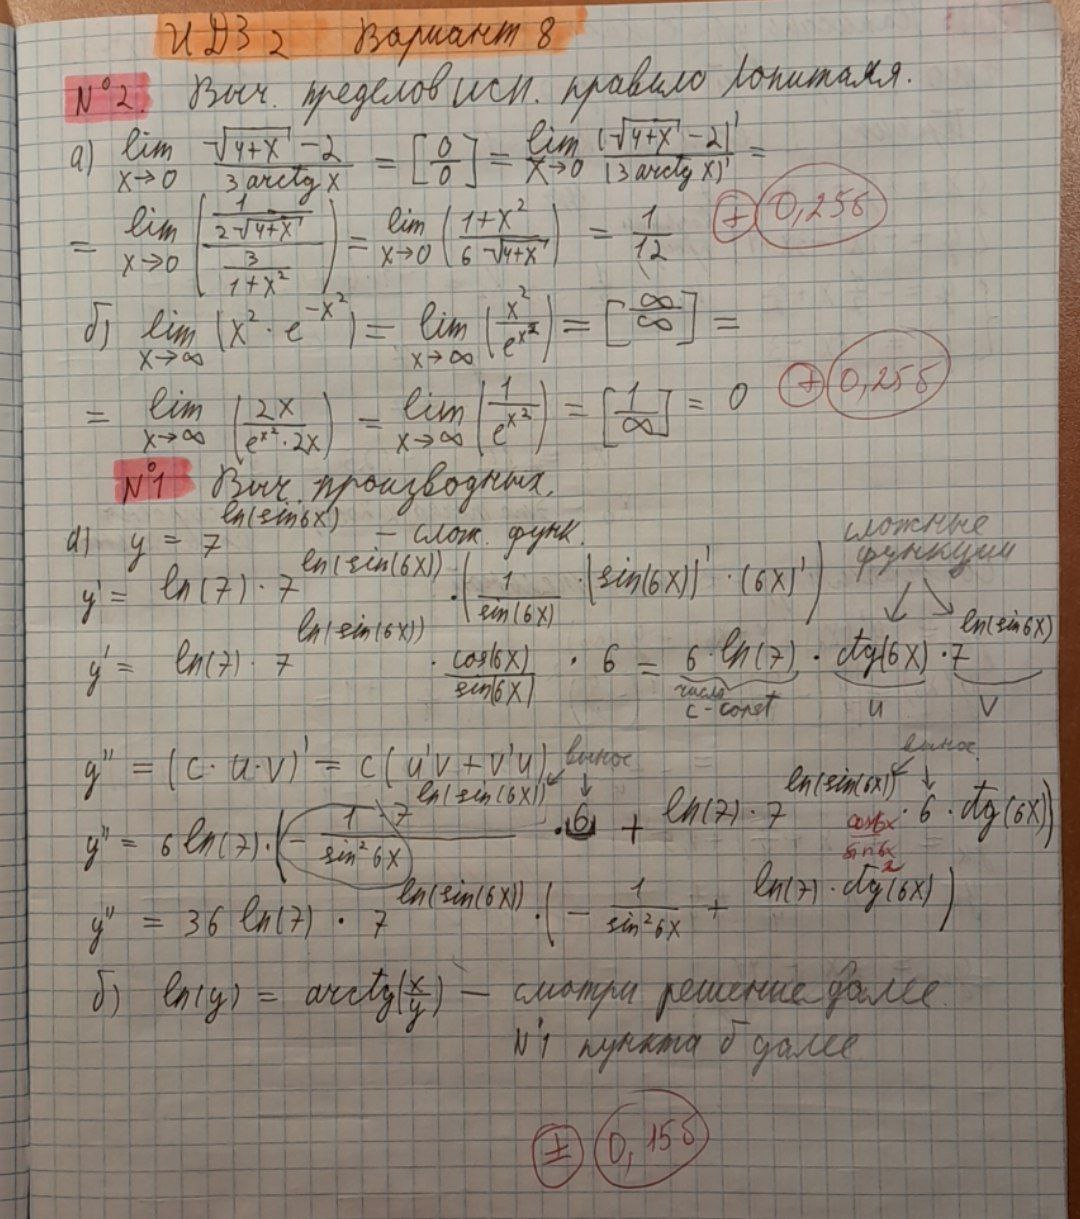 ИДЗ 2 Вариант 8
№2. Выч. пределов исп. правило Лопиталя.
а) lim x→0 (√(4+x) - 2)/(3 arctg x) = [0/0] = lim x→0 (√(4+x) - 2)'/(3 arctg x)' =
= lim x→0 ((1/(2√(4+x)))/(3/(1+x²))) = lim x→0 ((1+x²)/(6√(4+x))) = 1/12 + 0,25б
б) lim x→∞ (x² · e^(-x²)) = lim x→∞ (x²/e^(x²)) = [∞/∞] =
= lim x→∞ (2x/(e^(x²) · 2x)) = lim x→∞ (1/e^(x²)) = [1/∞] = 0 + 0,25б
№1 Выч. производных.
а) y = 7^(ln(sin6x)) - слож. функ.
сложные функции
y' = ln(7) · 7^(ln(sin(6x))) · (1/sin(6x) · (sin(6x))' · (6x)')
y' = ln(7) · 7^(ln(sin(6x))) · cos(6x)/sin(6x) · 6 = 6 · ln(7) · ctg(6x) · 7^(ln(sin6x))
число c - const u v
y'' = (c · u · v)' = c(u'v + v'u) вынос вынос
y'' = 6 ln(7) · (- (1 · 7^(ln(sin(6x))))/(sin²6x) · 6 + ln(7) · 7^(ln(sin(6x))) · 6 · ctg(6x))
cos6x/sin6x
y'' = 36 ln(7) · 7^(ln(sin(6x))) · (- 1/(sin²6x) + ln(7) · ctg²(6x))
б) ln(y) = arctg(x/y) — смотри решение далее
№1 пункта б далее
± 0,15б